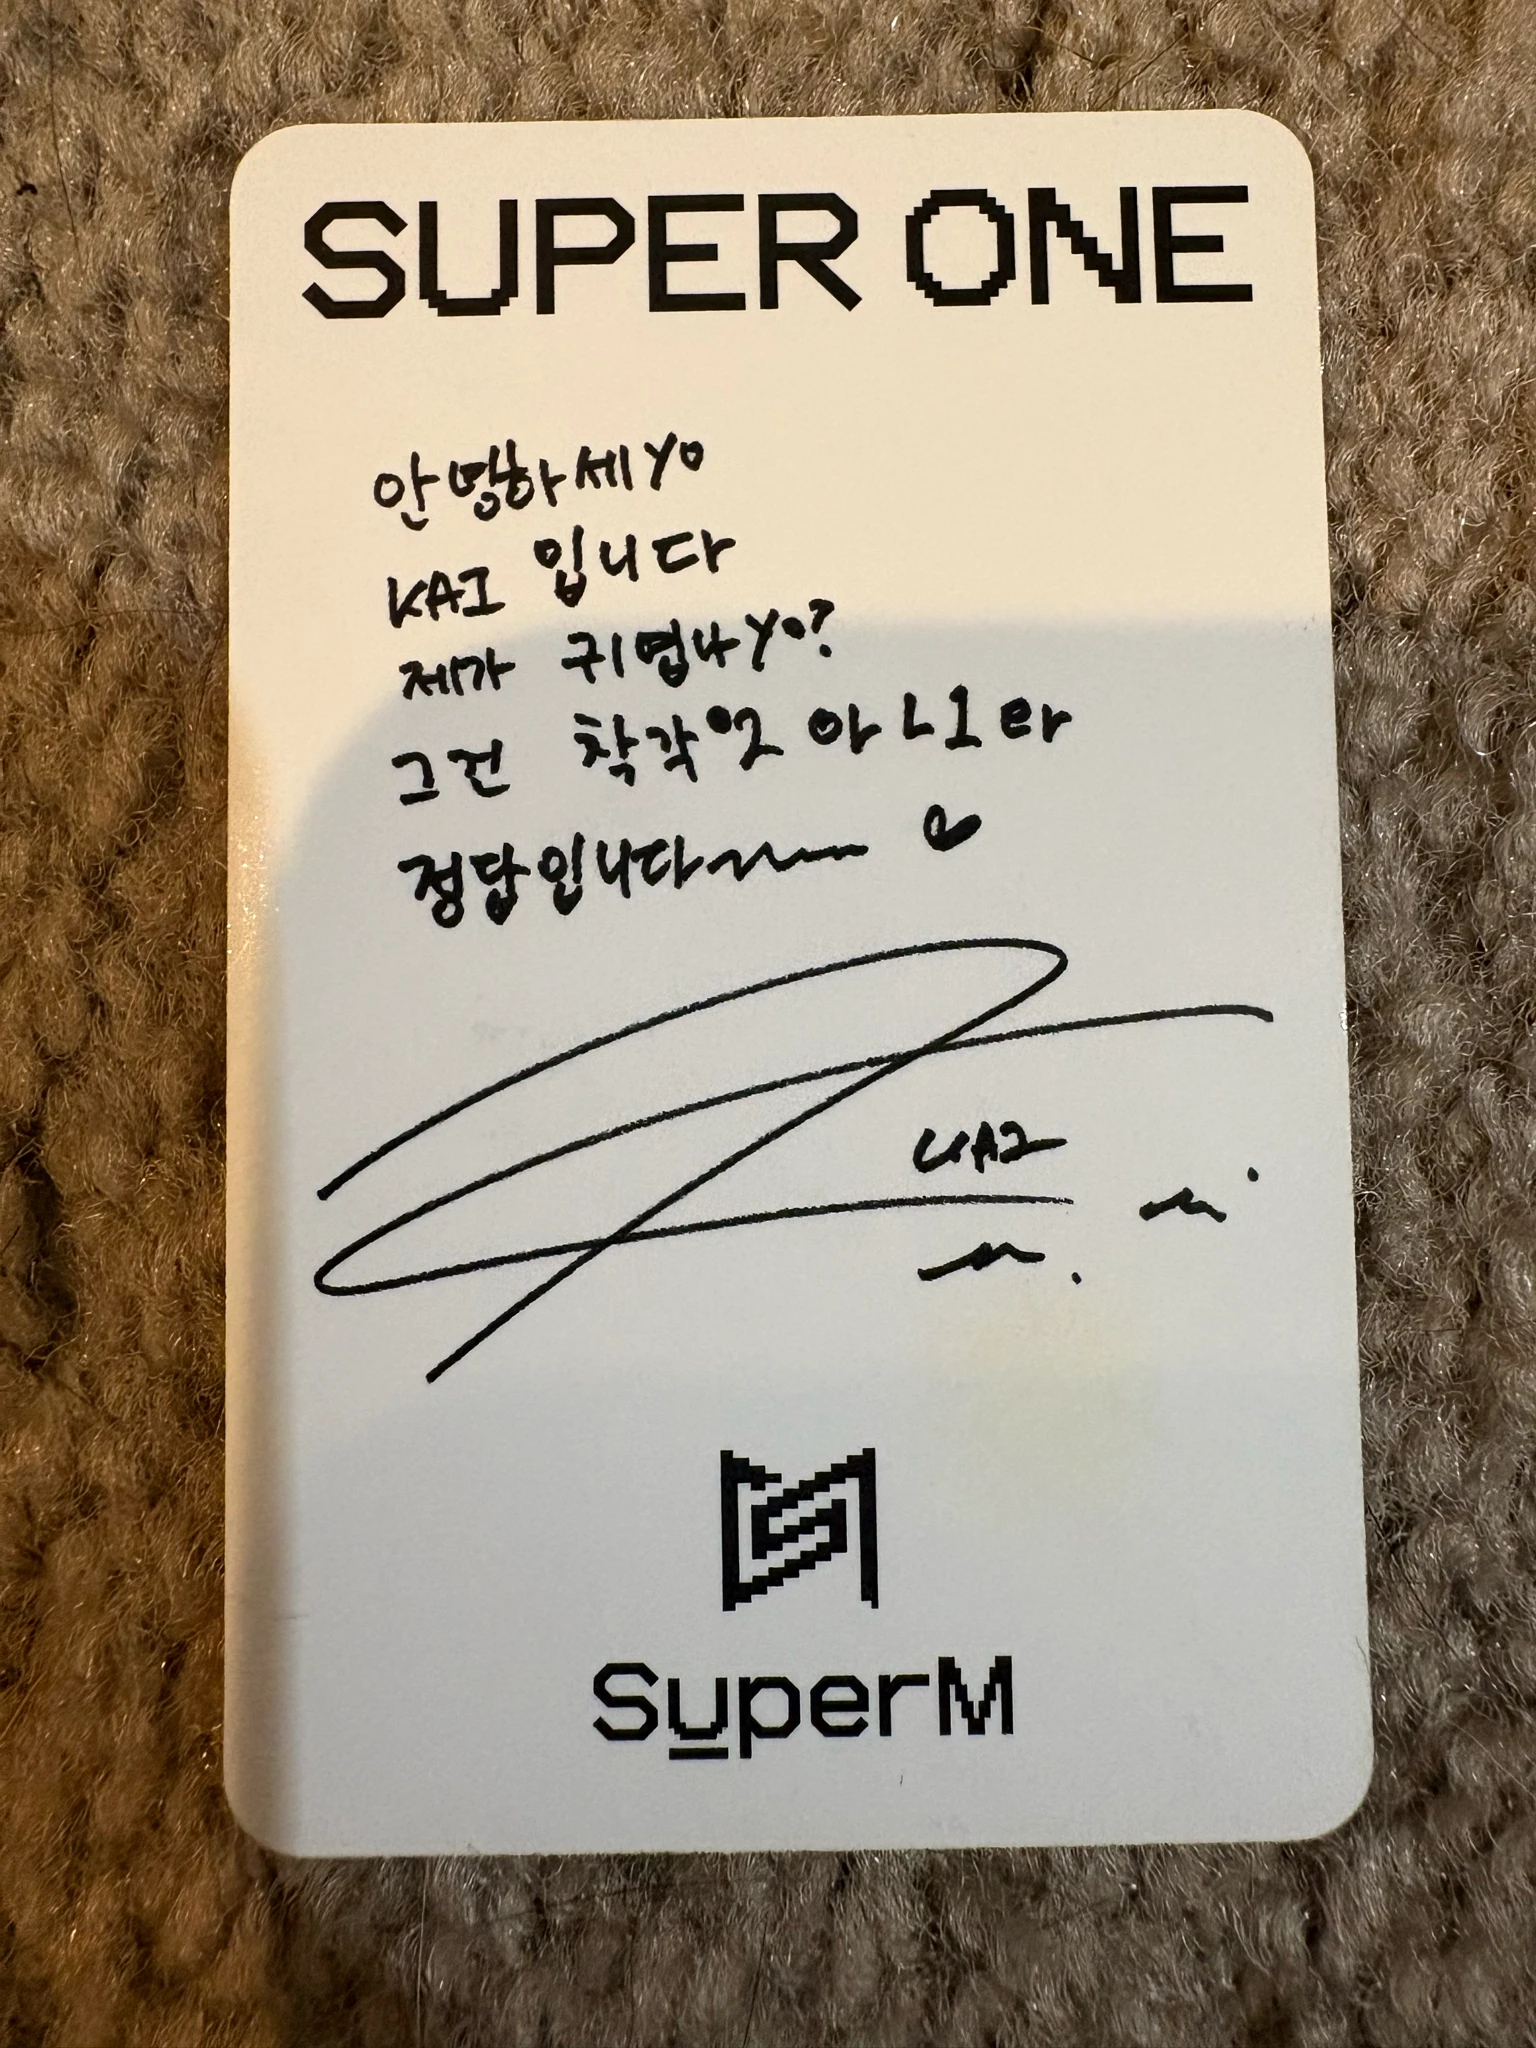 SUPER ONE
안녕하세yo
KAI 입니다
제가 귀엽나yo?
그건 착각이 아니라
정답입니다~ ♥
KAI
SM
SuperM